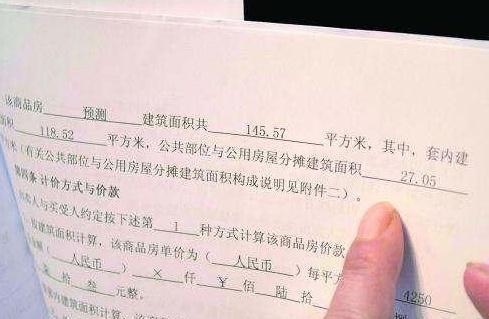 该商品房 预测 建筑面积共 145.57 平方米，其中，套内建
面积 118.52 平方米，公共部位与公用房屋分摊建筑面积 27.05
方米（有关公共部位与公用房屋分摊建筑面积构成说明见附件二）。
第四条 计价方式与价款
人与买受人约定按下述第 1 种方式计算该商品房价款
按建筑面积计算，该商品房单价为（ 人民币 ）每平方
（ 人民币 ） × 仟 ￥ 佰 陆 拾 4250
拾 叁 元整。
建筑面积计算，该商